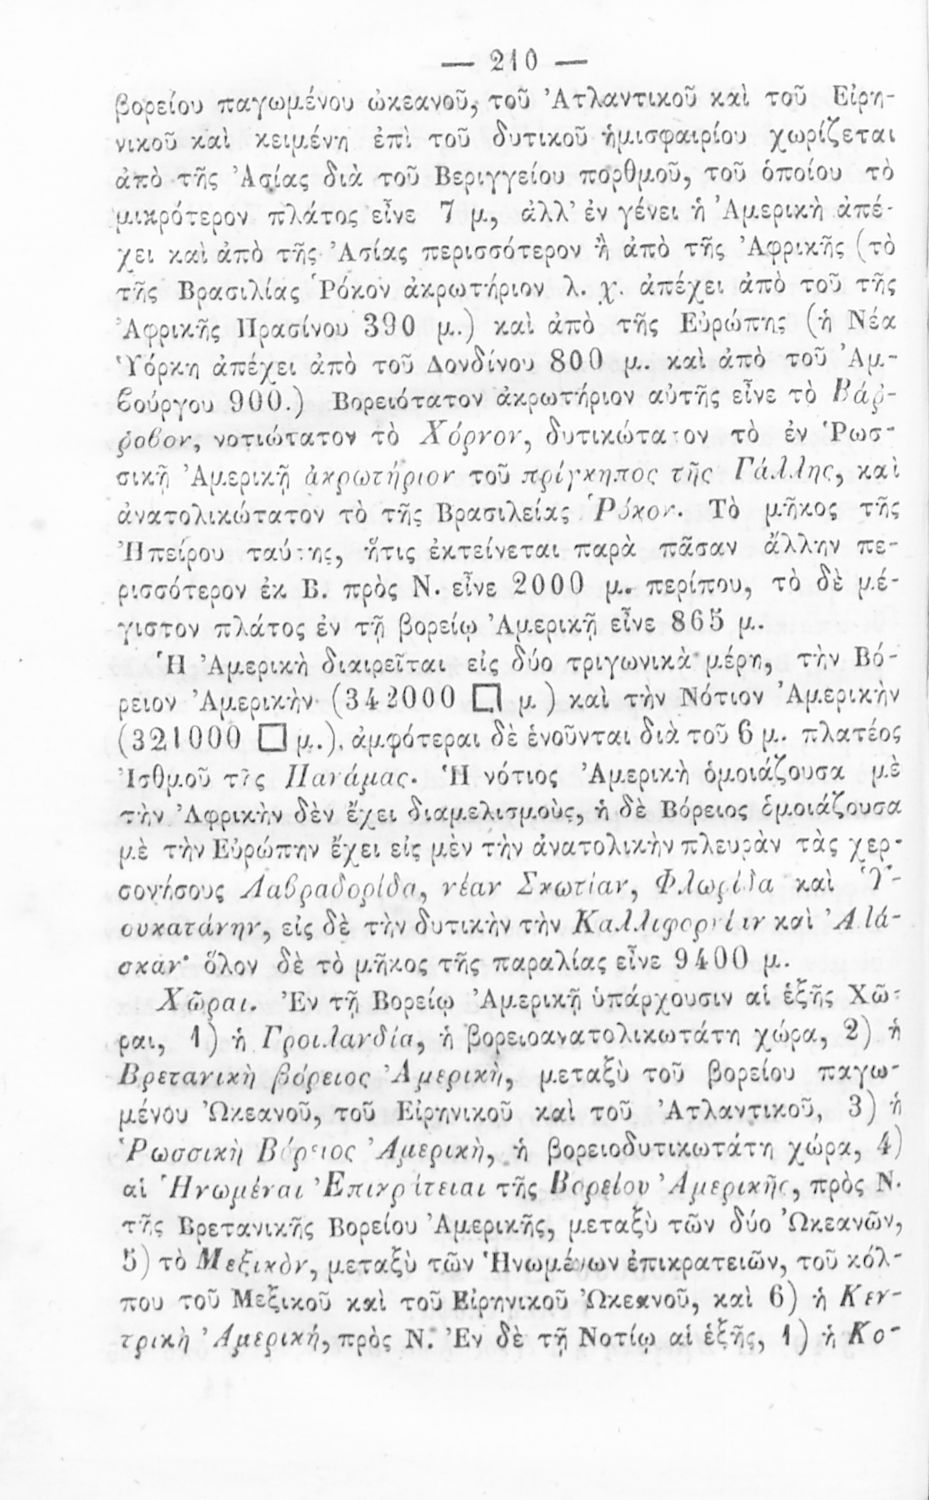 — 210 —
βορείου παγωμένου ὠκεανοῦ, τοῦ Ἀτλαντικοῦ καὶ τοῦ Εἰρη-
νικοῦ καὶ κειμένη ἐπὶ τοῦ δυτικοῦ ἡμισφαιρίου χωρίζεται
ἀπὸ τῆς Ἀσίας διὰ τοῦ Βεριγγείου πορθμοῦ, τοῦ ὁποίου τὸ
μικρότερον πλάτος εἶνε 7 μ, ἀλλ’ ἐν γένει ἡ Ἀμερικὴ ἀπέ-
χει καὶ ἀπὸ τῆς Ἀσίας περισσότερον ἢ ἀπὸ τῆς Ἀφρικῆς (τὸ
τῆς Βρασιλίας Ῥόκον ἀκρωτήριον λ. χ. ἀπέχει ἀπὸ τοῦ τῆς
Ἀφρικῆς Πρασίνου 390 μ.) καὶ ἀπὸ τῆς Εὐρώπης (ἡ Νέα
Ὑόρκη ἀπέχει ἀπὸ τοῦ Λονδίνου 800 μ. καὶ ἀπὸ τοῦ Ἀμ-
βούργου 900.) Βορειότατον ἀκρωτήριον αὐτῆς εἶνε τὸ Βάρ-
ροβον, νοτιώτατον τὸ Χόρνον, δυτικώτατον τὸ ἐν Ῥωσ-
σικῇ Ἀμερικῇ ἀκρωτήριον τοῦ πρίγκηπος τῆς Γάλλης, καὶ
ἀνατολικώτατον τὸ τῆς Βρασιλείας Ῥόκον. Τὸ μῆκος τῆς
Ἠπείρου ταύτης, ἥτις ἐκτείνεται παρὰ πᾶσαν ἄλλην πε-
ρισσότερον ἐκ Β. πρὸς Ν. εἶνε 2000 μ. περίπου, τὸ δὲ μέ-
γιστον πλάτος ἐν τῇ βορείῳ Ἀμερικῇ εἶνε 865 μ.
Ἡ Ἀμερικὴ διαιρεῖται εἰς δύο τριγωνικὰ μέρη, τὴν Βό-
ρειον Ἀμερικὴν (342000 □ μ ) καὶ τὴν Νότιον Ἀμερικὴν
(321000 □ μ.), ἀμφότεραι δὲ ἑνοῦνται διὰ τοῦ 6 μ. πλατέος
Ἰσθμοῦ τῆς Πανάμας. Ἡ νότιος Ἀμερικὴ ὁμοιάζουσα μὲ
τὴν Ἀφρικὴν δὲν ἔχει διαμελισμοὺς, ἡ δὲ Βόρειος ὁμοιάζουσα
μὲ τὴν Εὐρώπην ἔχει εἰς μὲν τὴν ἀνατολικὴν πλευρὰν τὰς χερ-
σονήσους Λαβραδορίδα, νέαν Σκωτίαν, Φλωρίδα καὶ Ὑ-
ουκατάνην, εἰς δὲ τὴν δυτικὴν τὴν Καλλιφορνίαν καὶ Ἀλά-
σκαν· ὅλον δὲ τὸ μῆκος τῆς παραλίας εἶνε 9400 μ.
Χῶραι. Ἐν τῇ Βορείῳ Ἀμερικῇ ὑπάρχουσιν αἱ ἑξῆς Χῶ-
ραι, 1) ἡ Γροιλανδία, ἡ βορειοανατολικωτάτη χώρα, 2) ἡ
Βρετανικὴ βόρειος Ἀμερικὴ, μεταξὺ τοῦ βορείου παγω-
μένου Ὠκεανοῦ, τοῦ Εἰρηνικοῦ καὶ τοῦ Ἀτλαντικοῦ, 3) ἡ
Ῥωσσικὴ Βόρειος Ἀμερικὴ, ἡ βορειοδυτικωτάτη χώρα, 4)
αἱ Ἡνωμέναι Ἐπικρίτειαι τῆς Βορείου Ἀμερικῆς, πρὸς Ν.
τῆς Βρετανικῆς Βορείου Ἀμερικῆς, μεταξὺ τῶν δύο Ὠκεανῶν,
5) τὸ Μεξικὸν, μεταξὺ τῶν Ἡνωμένων ἐπικρατειῶν, τοῦ κόλ-
που τοῦ Μεξικοῦ καὶ τοῦ Εἰρηνικοῦ Ὠκεανοῦ, καὶ 6) ἡ Κεν-
τρικὴ Ἀμερικὴ, πρὸς Ν. Ἐν δὲ τῇ Νοτίῳ αἱ ἑξῆς, 1) ἡ Κο-